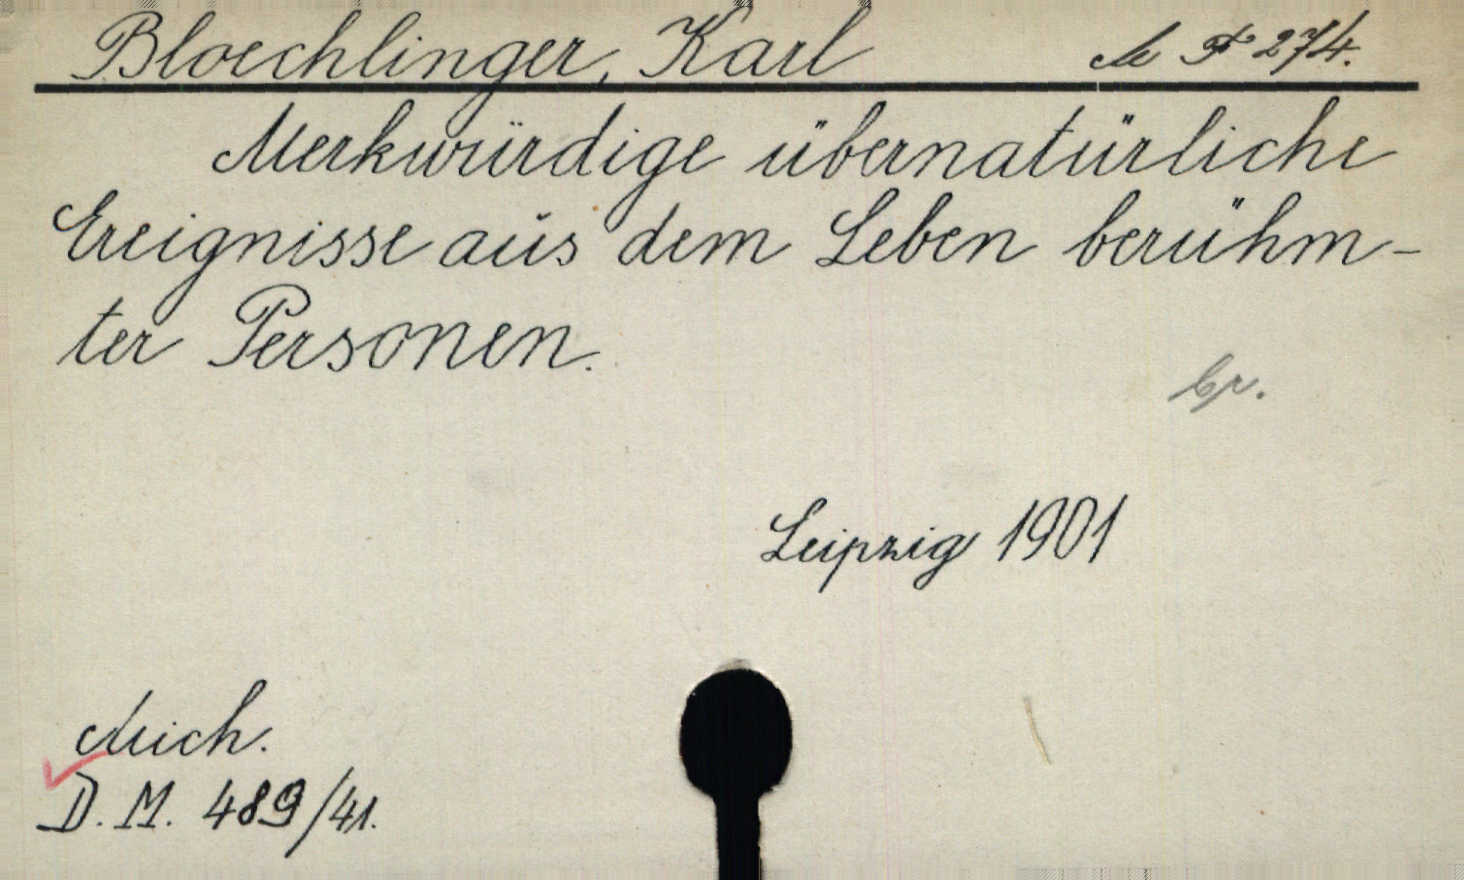 Bloechlinger, Karl M F 274.
Merkwürdige übernatürliche
Ereignisse aus dem Leben berühm-
ter Personen.
br.
Leipzig 1901
Mich.
D. M. 489/41.